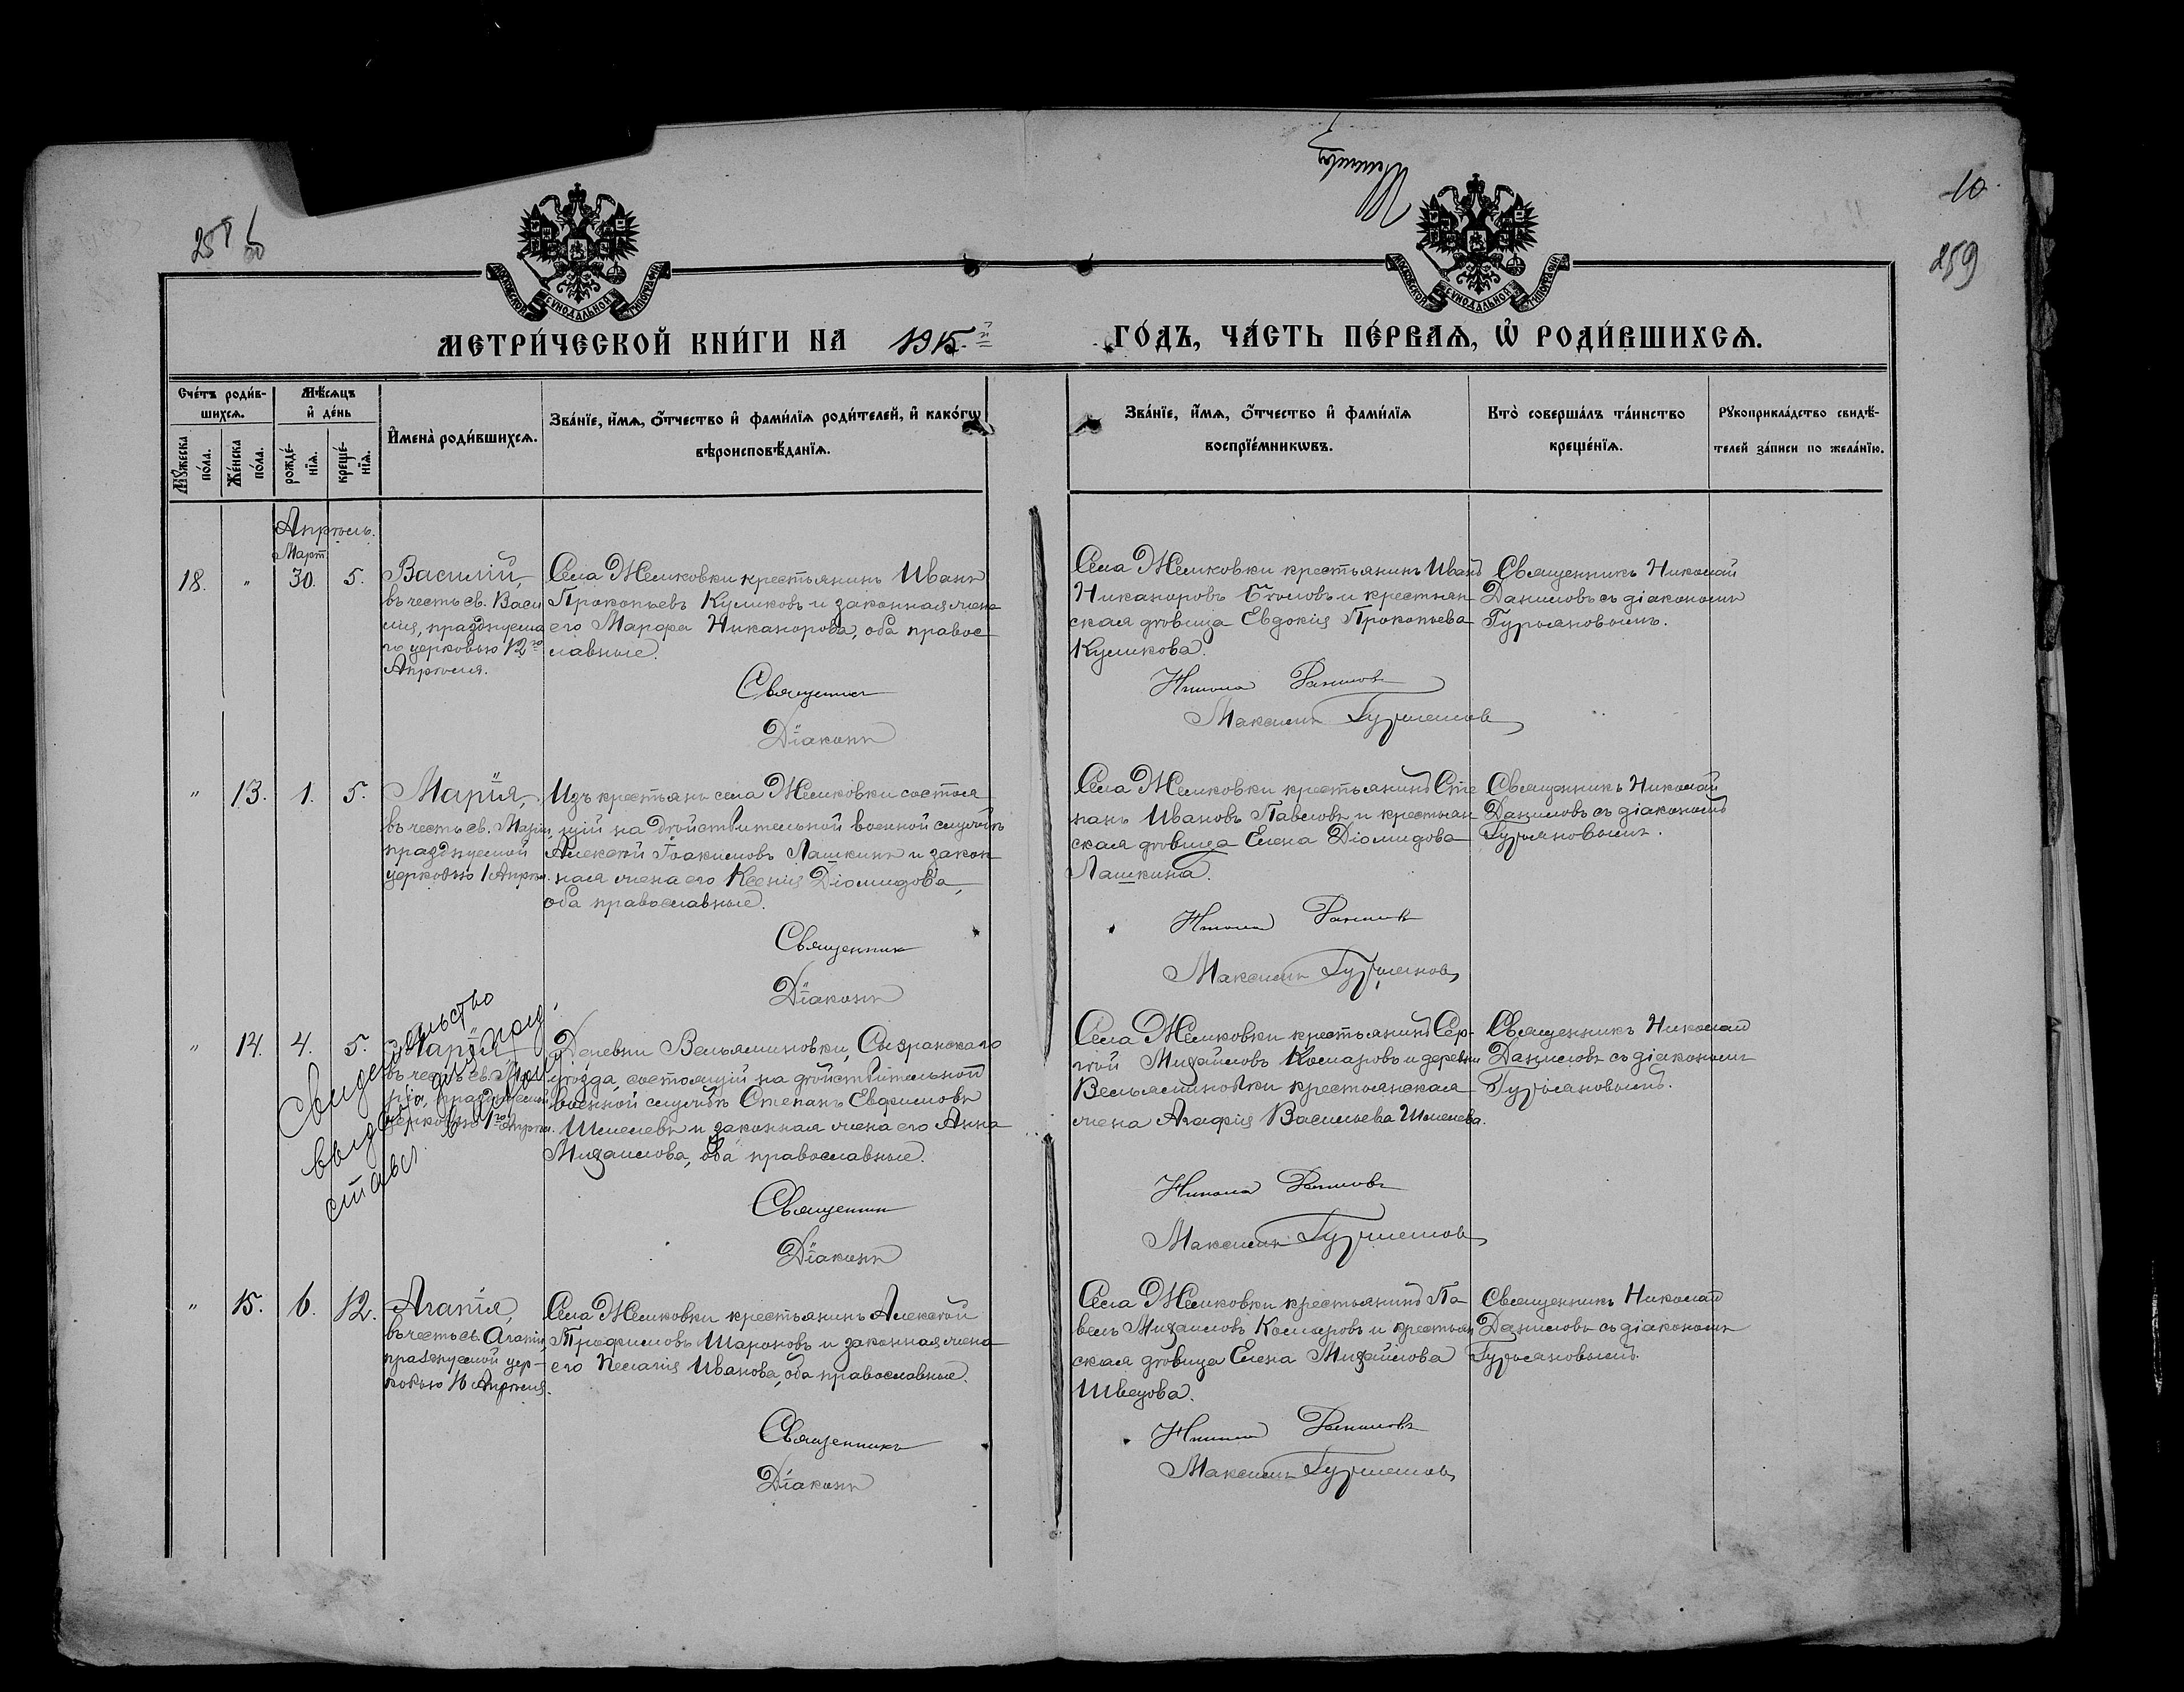 10
259
МОСКОВСКОЙ СѴНОДАЛЬНОЙ ТИПОГРАФІИ
МОСКОВСКОЙ СѴНОДАЛЬНОЙ ТИПОГРАФІИ
МЕТРИ́ЧЕСКОЙ КНИ́ГИ НА 1915.й ГО́ДЪ, ЧА́СТЬ ПЕ́РВАѦ, Ѡ҆ РОДИ́ВШИХСѦ.
Сче́тъ роди́в-
шихсѧ.
Мꙋ́жеска по́ла.
Же́нска по́ла.
Мѣ́сѧцъ
и҆ де́нь
рожде́-
нїѧ.
креще́-
нїѧ.
И҆мена̀ роди́вшихсѧ.
Зва́нїе, и҆́мѧ, ѻ҆́тчество и҆ фами́лїѧ роди́телей, и҆ како́гѡ
вѣроисповѣ́данїѧ.
Зва́нїе, и҆́мѧ, ѻ҆́тчество и҆ фами́лїѧ
воспрїе́мникѡвъ.
Кто̀ соверша́лъ та́инство
креще́нїѧ.
Рꙋкоприкла́дство свидѣ́-
телей за́писи по жела́нїю.
Апрѣль.
Март.
18. " 30. 5.
Василій,
въ честь св. Васи
лія, празднуема
го церковью 12го
Апрѣля.
Села Жемковки крестьянинъ Иванъ
Прокопьевъ Куликовъ и законная жена
его Марѳа Никанорова, оба правос-
лавные.
Священник
Діаконъ
Села Жемковки крестьянинъ Иванъ
Никаноровъ Бѣловъ и крестьян
ская дѣвица Евдокія Прокопьева
Куликова.
Никола Данилов
Максимъ Гурьянов
Священникъ Николай
Даниловъ съ діакономъ
Гурьяновымъ.
" 13. 1. 5.
Марія,
въ честь св. Маріи,
празднуемой
церковью 1 Апрѣл.
Изъ крестьянъ села Жемковки состоя-
щій на дѣйствительной военной службѣ
Алексѣй Іоакимовъ Лашкинъ и закон-
ная жена его Ксенія Діомидова,
оба православные.
Священник
Діаконъ
Села Жемковки крестьянинъ Сте
панъ Ивановъ Павловъ и крестьян
ская дѣвица Елена Діомидова
Лашкина.
Никола Данилов
Максимъ Гурьянов
Священникъ Николай
Даниловъ съ діакономъ
Гурьяновымъ.
" 14. 4. 5.
Марія
въ честь св. Ма
ріи, празднуемой
церковью 1го Апрѣл.
Свидетельство
выдано для
Деревни Вельяминовки, Сызранскаго
уѣзда, состоящій на дѣйствительной
военной службѣ Степанъ Евфимовъ
Шмелевъ и законная жена его Анна
Михаилова, оба православные.
Священник
Діаконъ
Села Жемковки крестьянинъ Сер-
гѣй Михайловъ Комаровъ и деревни
Вельяминовки крестьянская
жена Агафія Васильева Шмелева.
Никола Данилов
Максимъ Гурьянов
Священникъ Николай
Даниловъ съ діакономъ
Гурьяновымъ.
" 15. 6. 12.
Агапія,
въ честь св. Агапіи,
празднуемой цер-
ковью 16 Апрѣля.
Села Жемковки крестьянинъ Алексѣй
Трофимовъ Шароновъ и законная жена
его Пелагія Иванова, оба православные.
Священникъ
Діаконъ
Села Жемковки крестьянинъ Па-
велъ Михаиловъ Комаровъ и крестьян
ская дѣвица Елена Михайлова
Швецова.
Никола Данилов
Максимъ Гурьянов
Священникъ Николай
Даниловъ съ діакономъ
Гурьяновымъ.